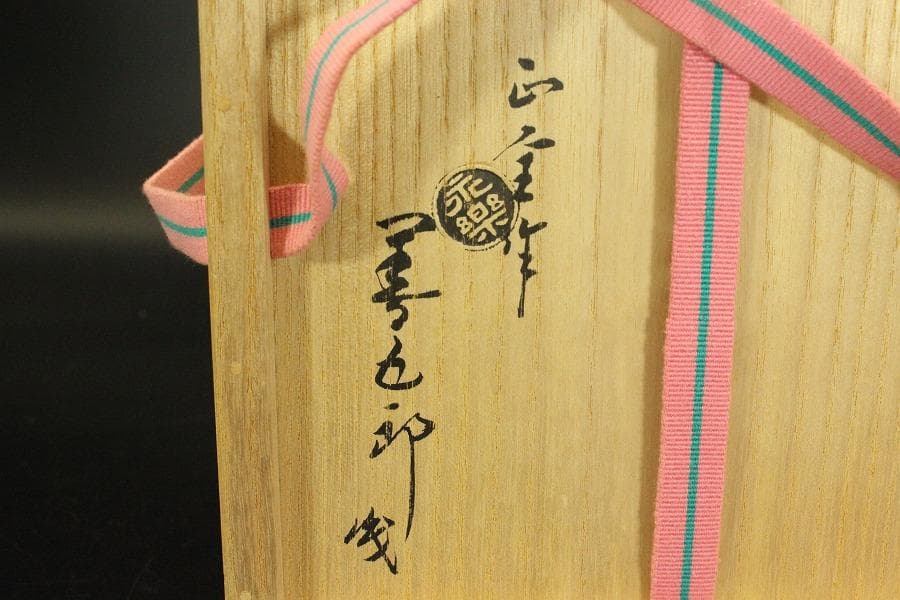 正全作
永樂
善五郎